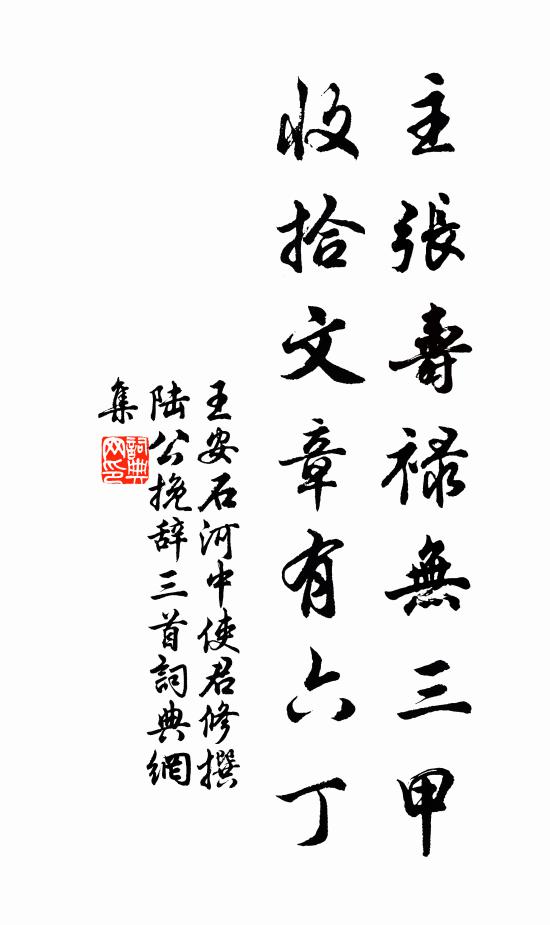 主張壽禄無三甲
收拾文章有六丁
王安石河中使君修撰
陆公挽辞三首詞典網
集
詞典网印